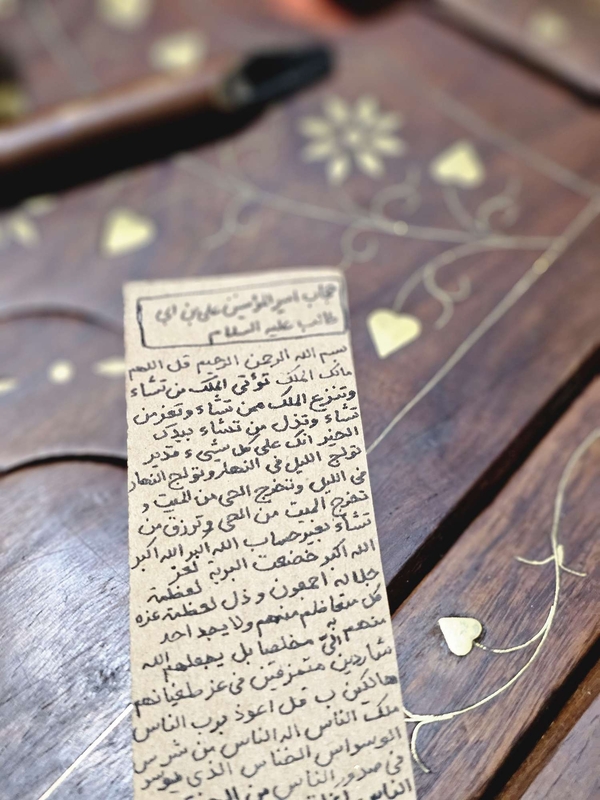 حجاب امير المؤمنين علي بن ابي
طالب عليه السلام
بسم الله الرحمن الرحيم قل اللهم
مالك الملك تؤتي الملك من تشاء
وتنزع الملك ممن تشاء وتعز من
تشاء وتذل من تشاء بيدك
الخير انك على كل شيء قدير
تولج الليل في النهار وتولج النهار
في الليل وتخرج الحي من الميت و
تخرج الميت من الحي وترزق من
تشاء بغير حساب الله اكبر الله اكبر
الله اكبر خضعت البرية لعز
جلاله اجمعون وذل لعظمة عزه
كل متعاظم منهم ولا يجد احد
منهم الي مخلصا بل يجعلهم الله
شاردين متمزقين في عز طغيانهم
هالكين ب قل اعوذ برب الناس
ملك الناس اله الناس من شر
الوسواس الخناس الذي يوسوس
في صدور الناس من الجنة